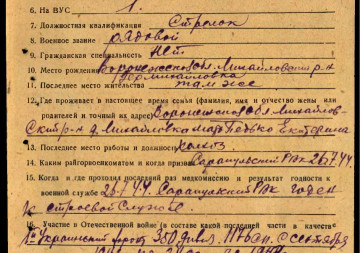 6. На ВУС 1.
7. Должностная квалификация Стрелок
8. Военное звание рядовой
9. Гражданская специальность нет
10. Место рождения Воронежской обл Михайловский р-н
дер Михайловка
11. Последнее место жительства там же
12. Где проживает в настоящее время семья (фамилия, имя и отчество жены или
родителей и точный их адрес) Воронежская обл Михайлов-
ский р-н д. Михайловка мать Екатерина
13. Последнее место работы и должность колхоз
14. Каким райгорвоенкоматом и когда призван Сарапульский РВК 26.7.44
15. Когда и где проходил последний раз медкомиссию и результат годности к
военной службе 26.7.44. Сарапульский РВК годен
к строевой службе.
16. Участие в Отечественной войне (в составе какой последней части, в качестве
Украинский фронт 350 див. с сентября